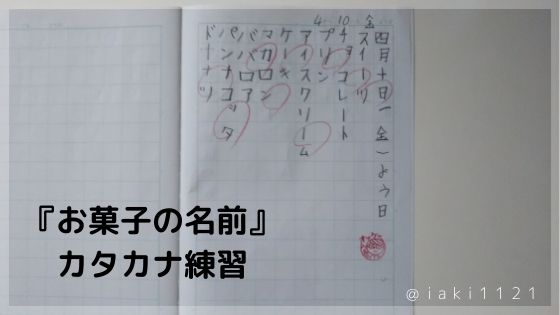 4 10 金
四月十日(金)よう日
スイーツ
チョコレート
プリン
アイスクリーム
ケーキ
マカロン
ババロア
パンナコッタ
ドーナツ
『お菓子の名前』
カタカナ練習
@iaki1121